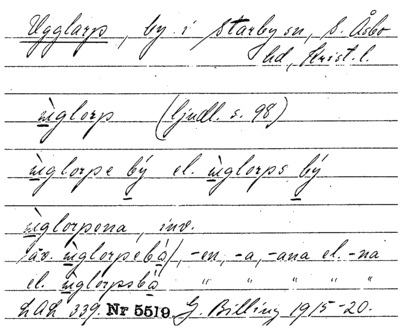 Ugglarp, by i Starby sn, S. Åsbo
hd, Krist. l.
ùglorp (ljudl. s. 98)
ùglorpe bý el. ùglorps bý
ùglorpona, inv.
äv. ùglorpebo/, -en, -a, -ana el. -na
el. ùglorpsbo " " " " "
LAL 339. Nr 5519. G. Billing 1915-20.